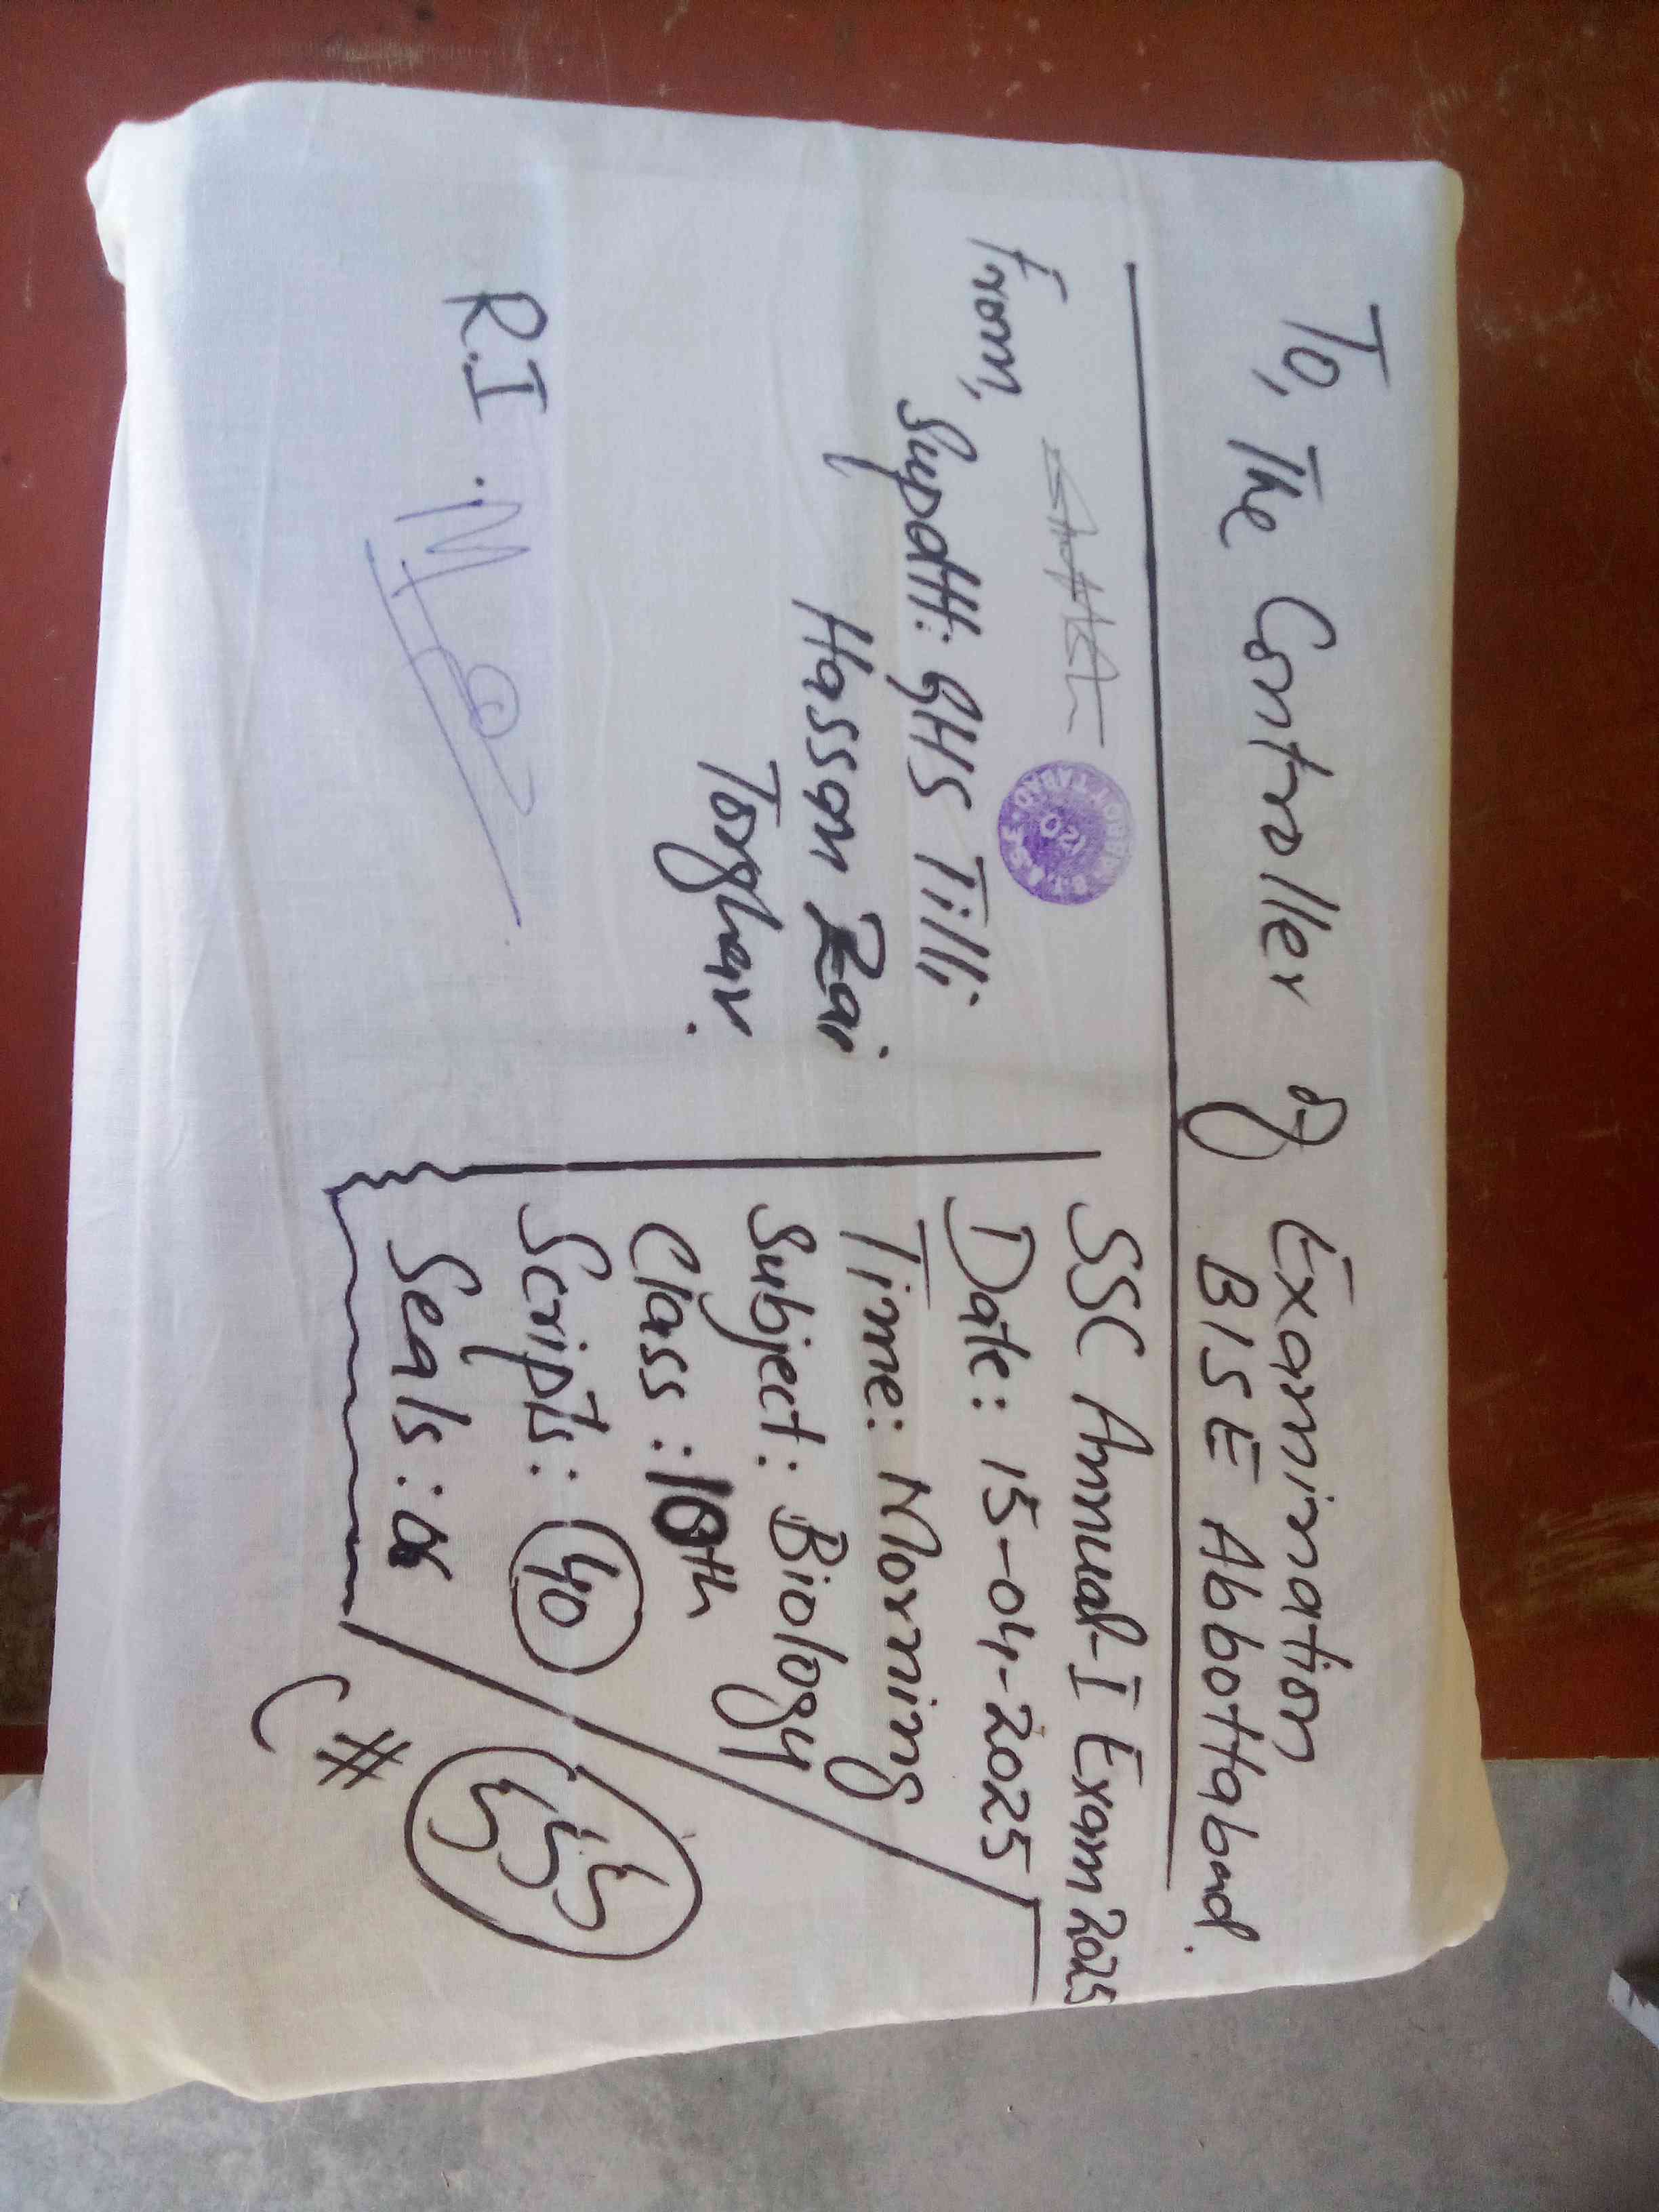 To, The Controller of Examination
BISE Abbottabad.
From,
Supdtt: GHS Tilli
Hassan Zai
Torghar.
R.I.
SSC Annual-I Exam 2025
Date: 15-04-2025
Time: Morning
Subject: Biology
Class: 10th
Scripts: 40
Seals:
B.I.S.E. ABBOTTABAD